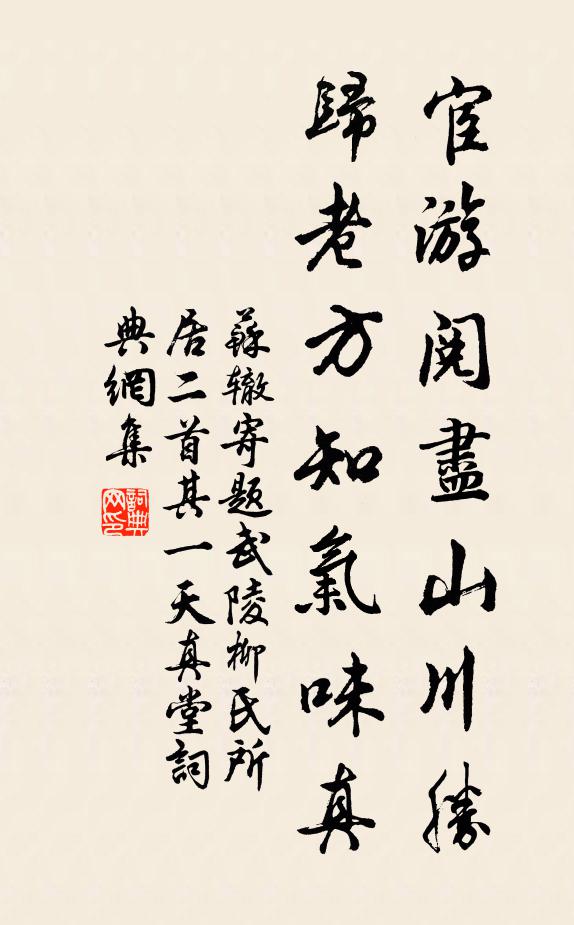 宦游閱盡山川勝
歸老方知氣味真
蘇轍寄題武陵柳氏所
居二首其一天真堂詞
典網集
詞典
网印